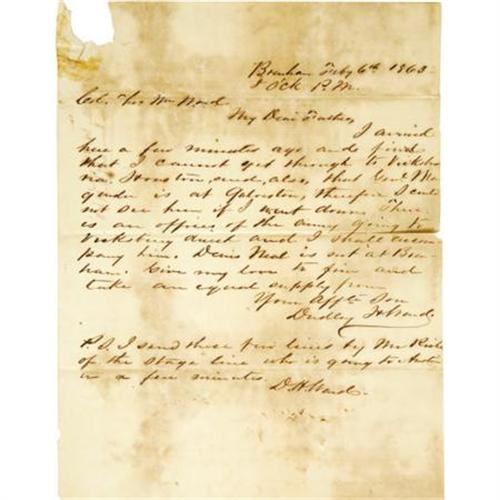 Brenham Feby 6th 1863
Ock P.M.
Col.
My Dear Father,
I arrived
here a few minutes ago and find
that I cannot get through to Vicksbu
via. Houston, and, also, that Genl Ma
gruder is at Galveston, therefore I could
not see him if I went down. There
is an officer of the army going to
Vicksburg direct and I shall accom
pany him. is not at Bren
ham. Give my love to and
take an equal supply from
Your Afft. Son
Dudley H Ward.
P.S. I send these few lines by Mr
of the stage line who is going to Austin
in a few minutes D.H. Ward.